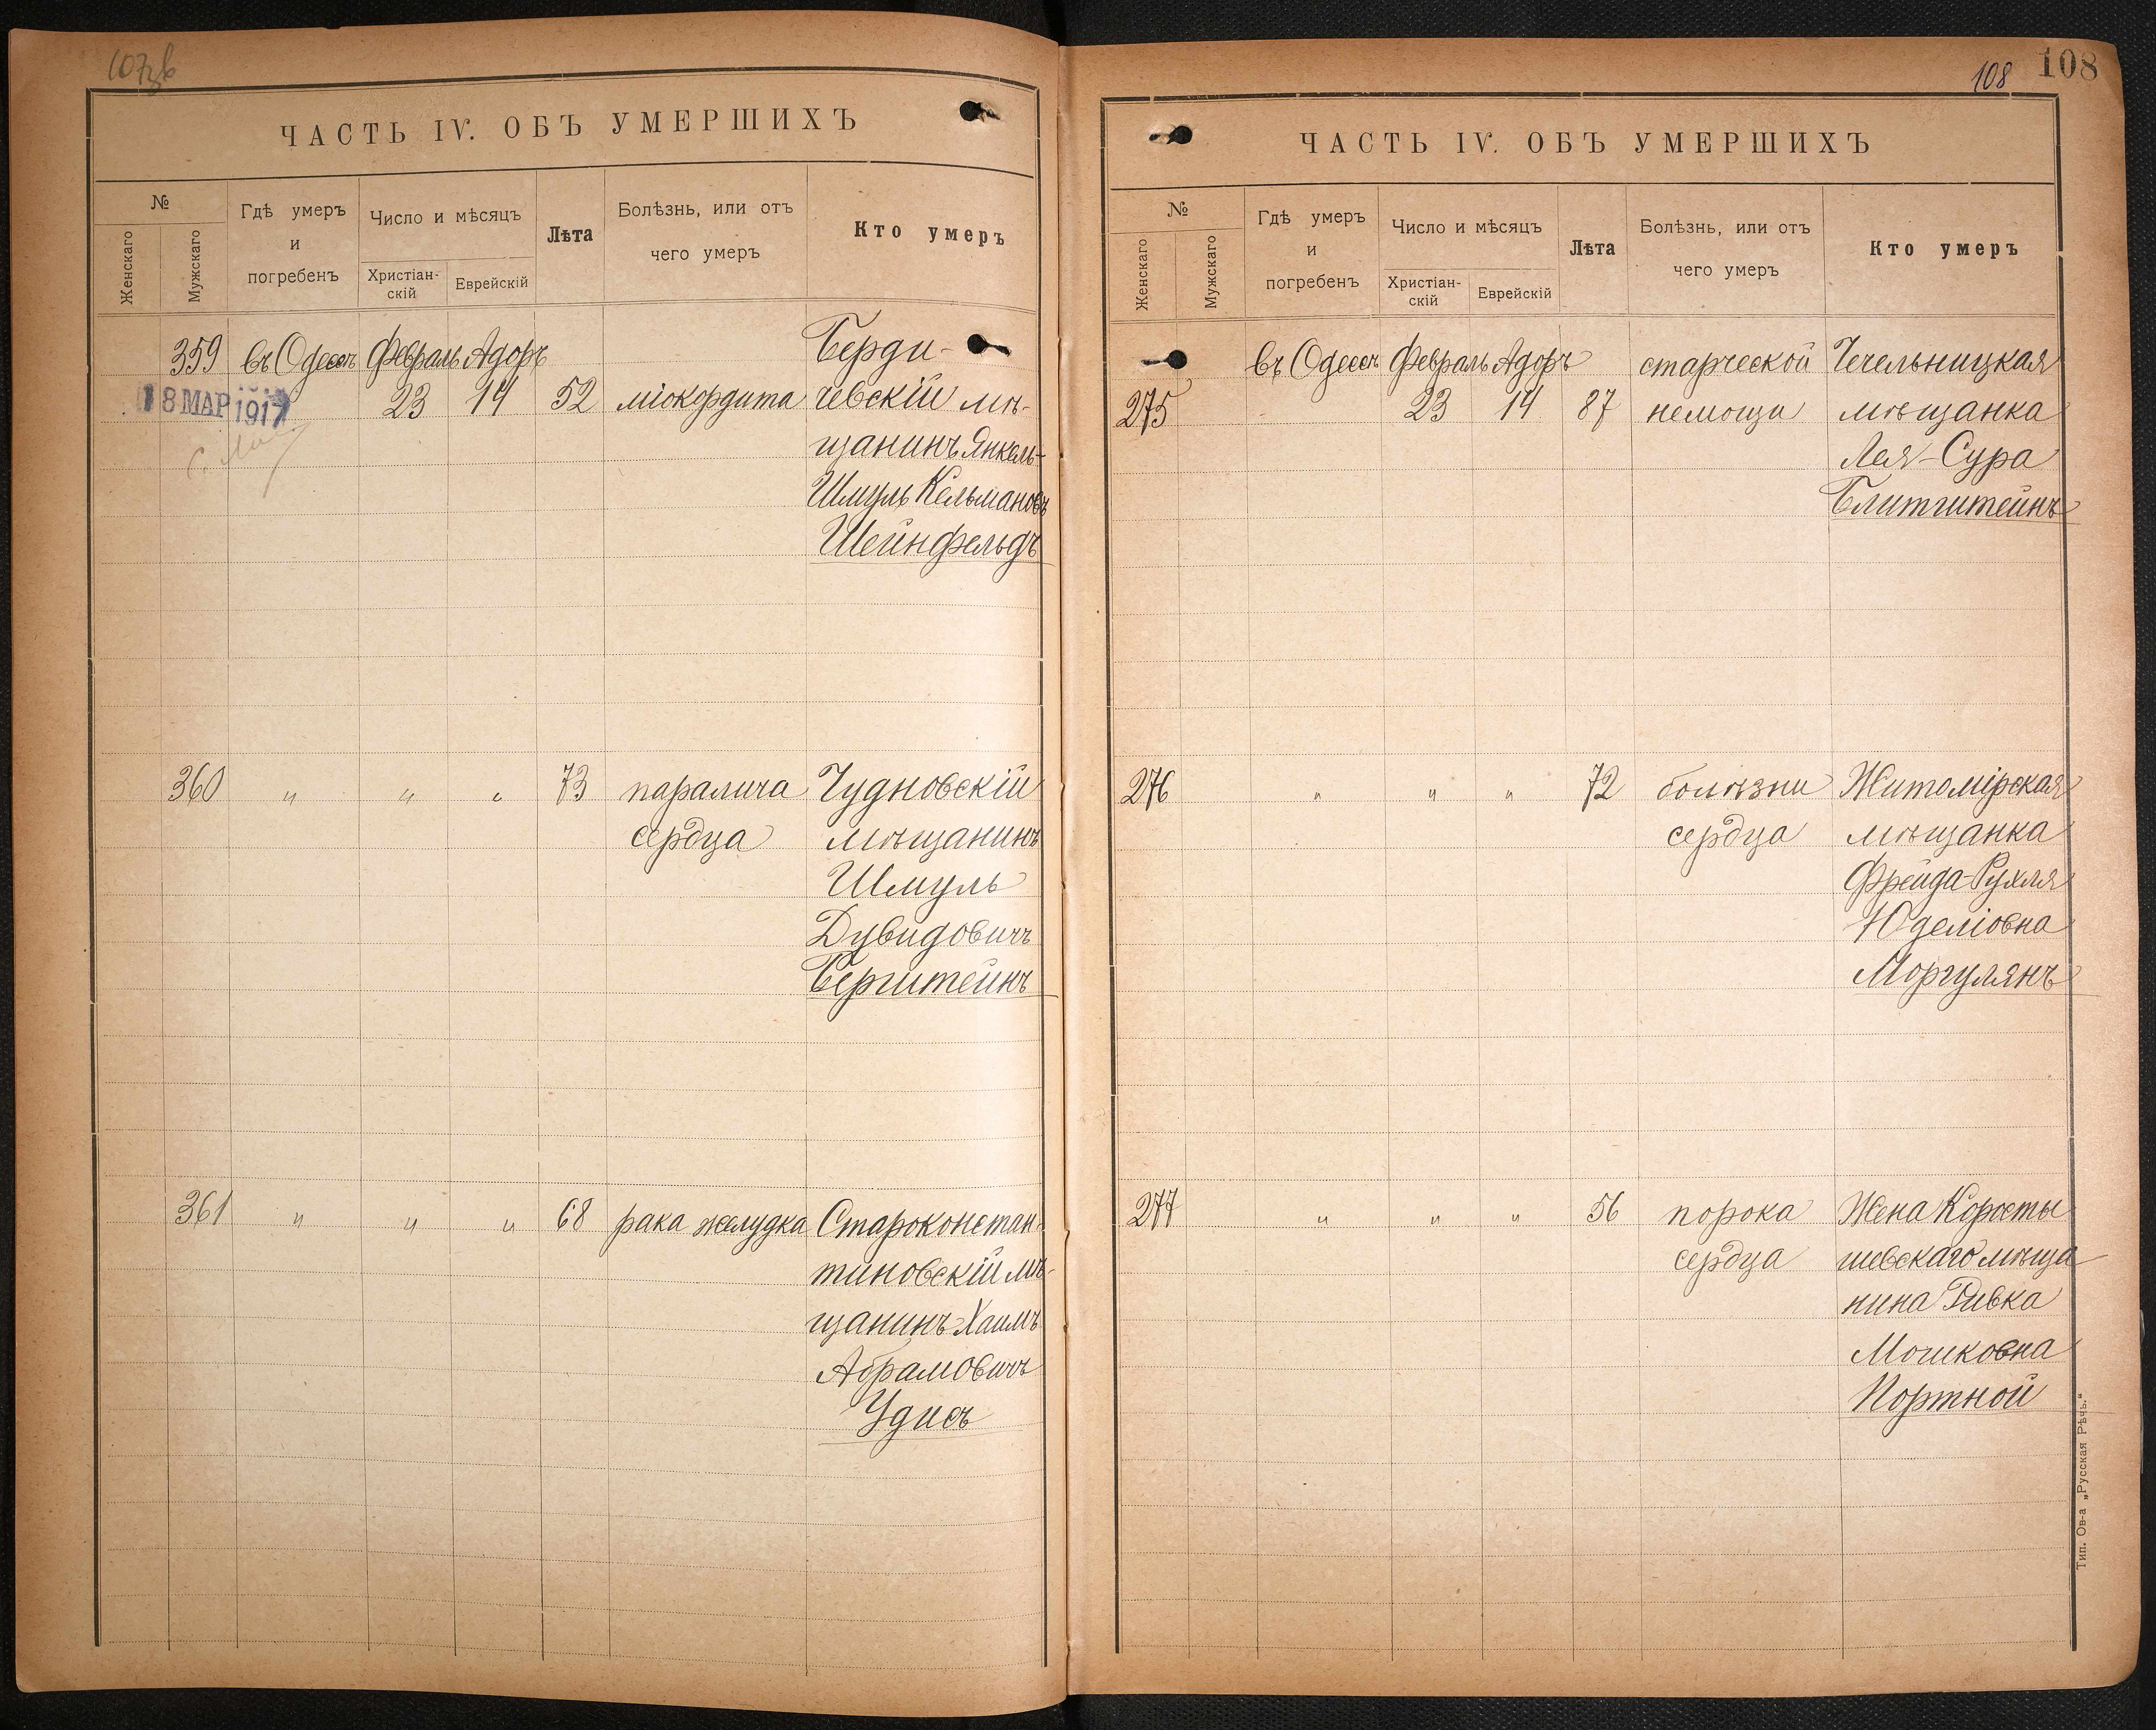 ЧАСТЬ IV. ОБЪ УМЕРШИХЪ
№
Женскаго
Мужскаго
Гдѣ умеръ
и
погребенъ
Число и мѣсяцъ
Христіан-
скій
Еврейскій
Лѣта
Болѣзнь, или отъ
чего умеръ
Кто умеръ
359 въ Одессѣ Февраль Адоръ Берди-
18 МАР 1917 23 14 52 міокардита чевскій мѣ-
щанинъ Янкель-
Шмуль Кельмановъ
Шейнфельдъ
360 " " " 73 паралича Чудновскій
сердца мѣщанинъ
Шмуль
Дувидовичъ
Берштейнъ
361 " " " 68 рака желудка Староконстан-
тиновскій мѣ-
щанинъ Хаимъ
Абрамовичъ
Удисъ
108 108
ЧАСТЬ IV. ОБЪ УМЕРШИХЪ
№
Женскаго
Мужскаго
Гдѣ умеръ
и
погребенъ
Число и мѣсяцъ
Христіан-
скій
Еврейскій
Лѣта
Болѣзнь, или отъ
чего умеръ
Кто умеръ
въ Одессѣ Февраль Адоръ старческой Чечельницкая
275 23 14 87 немощи мѣщанка
Лея-Сура
Блитштейнъ
276 " " " 72 болѣзни Житомірская
сердца мѣщанка
Фрейда-Рухля
Юделіовна
Моргулянъ
277 " " " 56 порока Жена Коросты
сердца шевскаго мѣща
нина Ривка
Мошковна
Портной
Тип. Ов-а „Русская Рѣчь.“